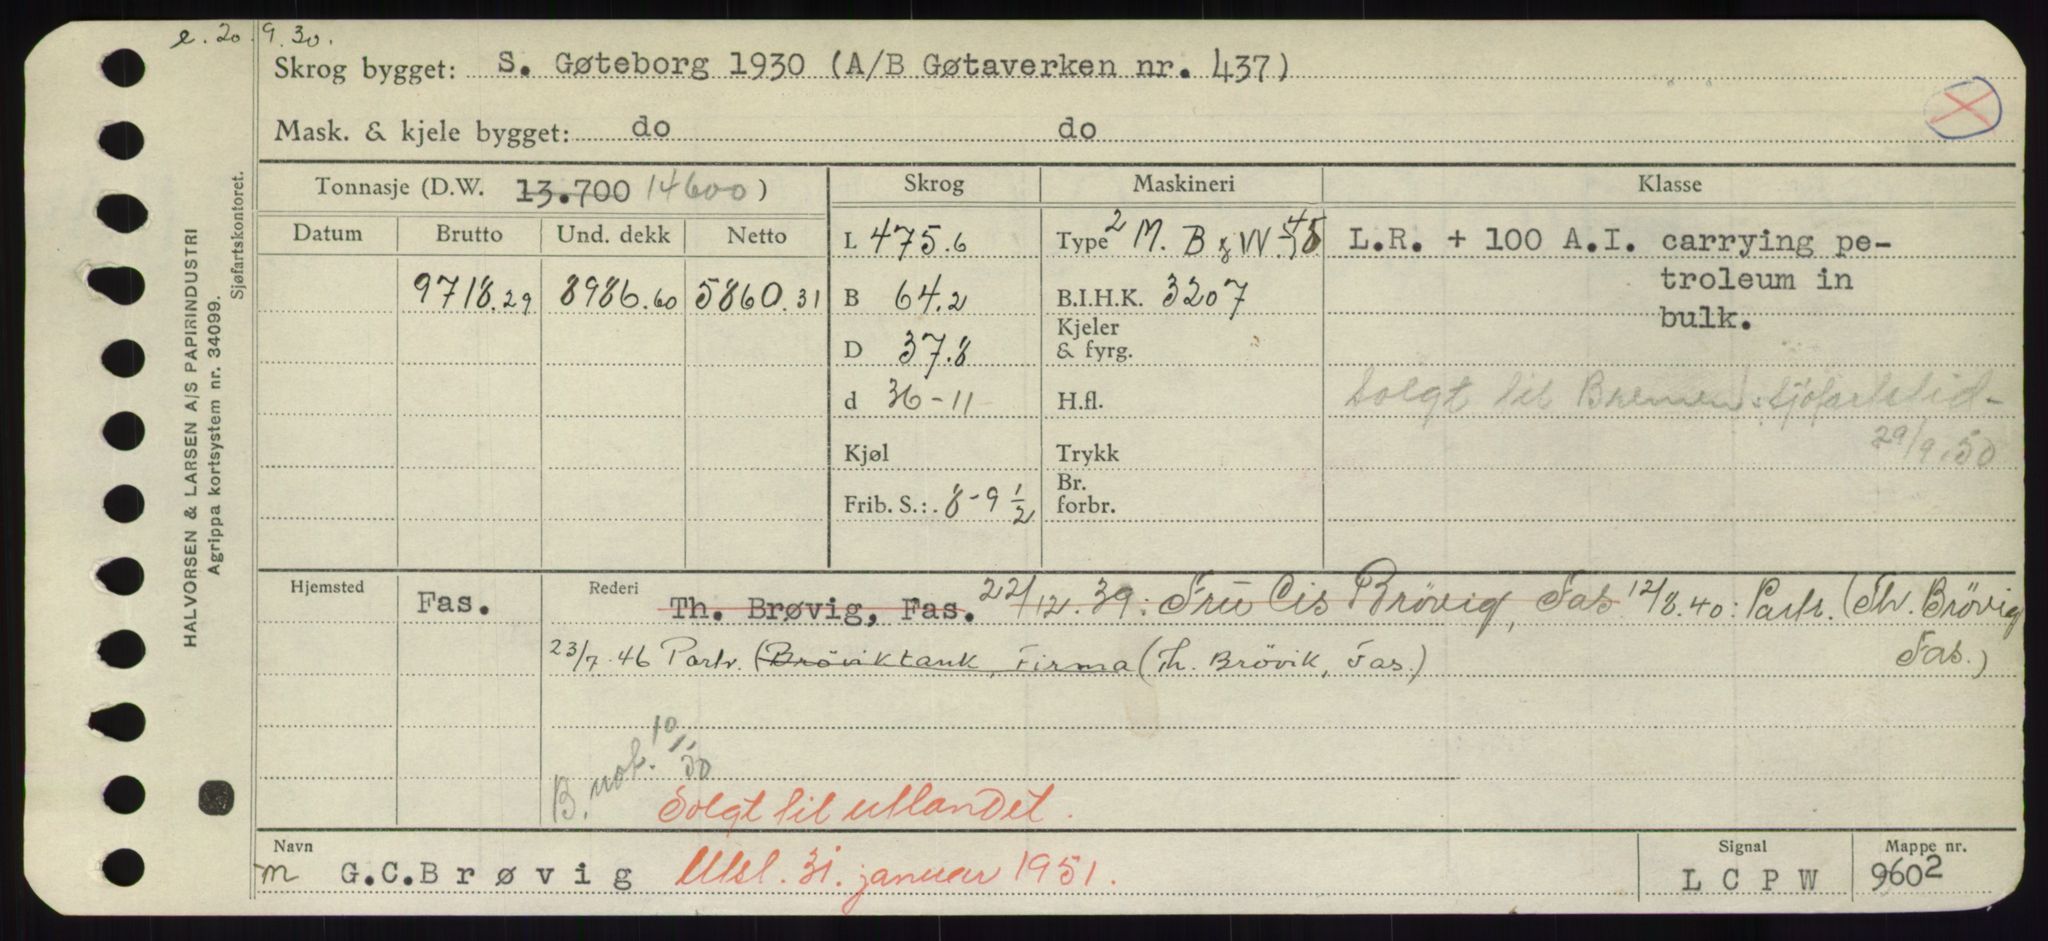 e. 20.9.30.
Skrog bygget: S. Gøteborg 1930 (A/B Gøtaverken nr. 437)
Mask. & kjele bygget: do do
Tonnasje (D.W. 13.700 14600)
Skrog
Maskineri
Klasse
Datum Brutto Und. dekk Netto
9718.29 8986.60 5860.31
L 475.6
B 64.2
D 37.8
d 36-11
Kjøl
Frib. S.: 8-9 1/2
Type 2 M. B & W.
B.I.H.K. 3207
Kjeler
& fyrg.
H.fl.
Trykk
Br.
forbr.
L.R. + 100 A.I. carrying pe-
troleum in
bulk.
Solgt til Bremen: Sjøfartstid-
29/9.50
Hjemsted Fas.
Rederi Th. Brøvig, Fas. 22/12.39: Fru Cis Brövig, Fas 12/8.40: Partr. (Th. Brövig
Fas.)
23/7.46 Partr. (Bröviktank, Firma (Th. Brövik, Fas.)
B. not. 10/1.50
Solgt til utlandet.
Navn
m G.C.Brøvig Utsl. 31. januar 1951.
Signal
LCPW
Mappe nr.
9602
HALVORSEN & LARSEN A/S PAPIRINDUSTRI
Agrippa kortsystem nr. 34099.
Sjøfartskontoret.